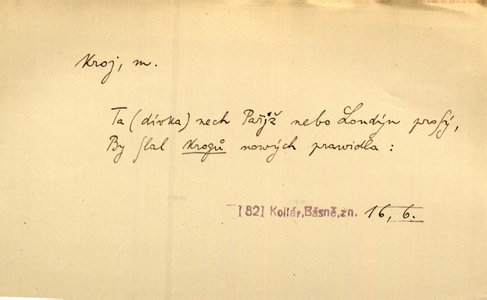 Kroj, m.
Ta (dívka) nech Pařjž nebo Londýn prosý,
By slal Krogů nowých prawidla :
[82] Kollár, Básně, zn. 16, 6.